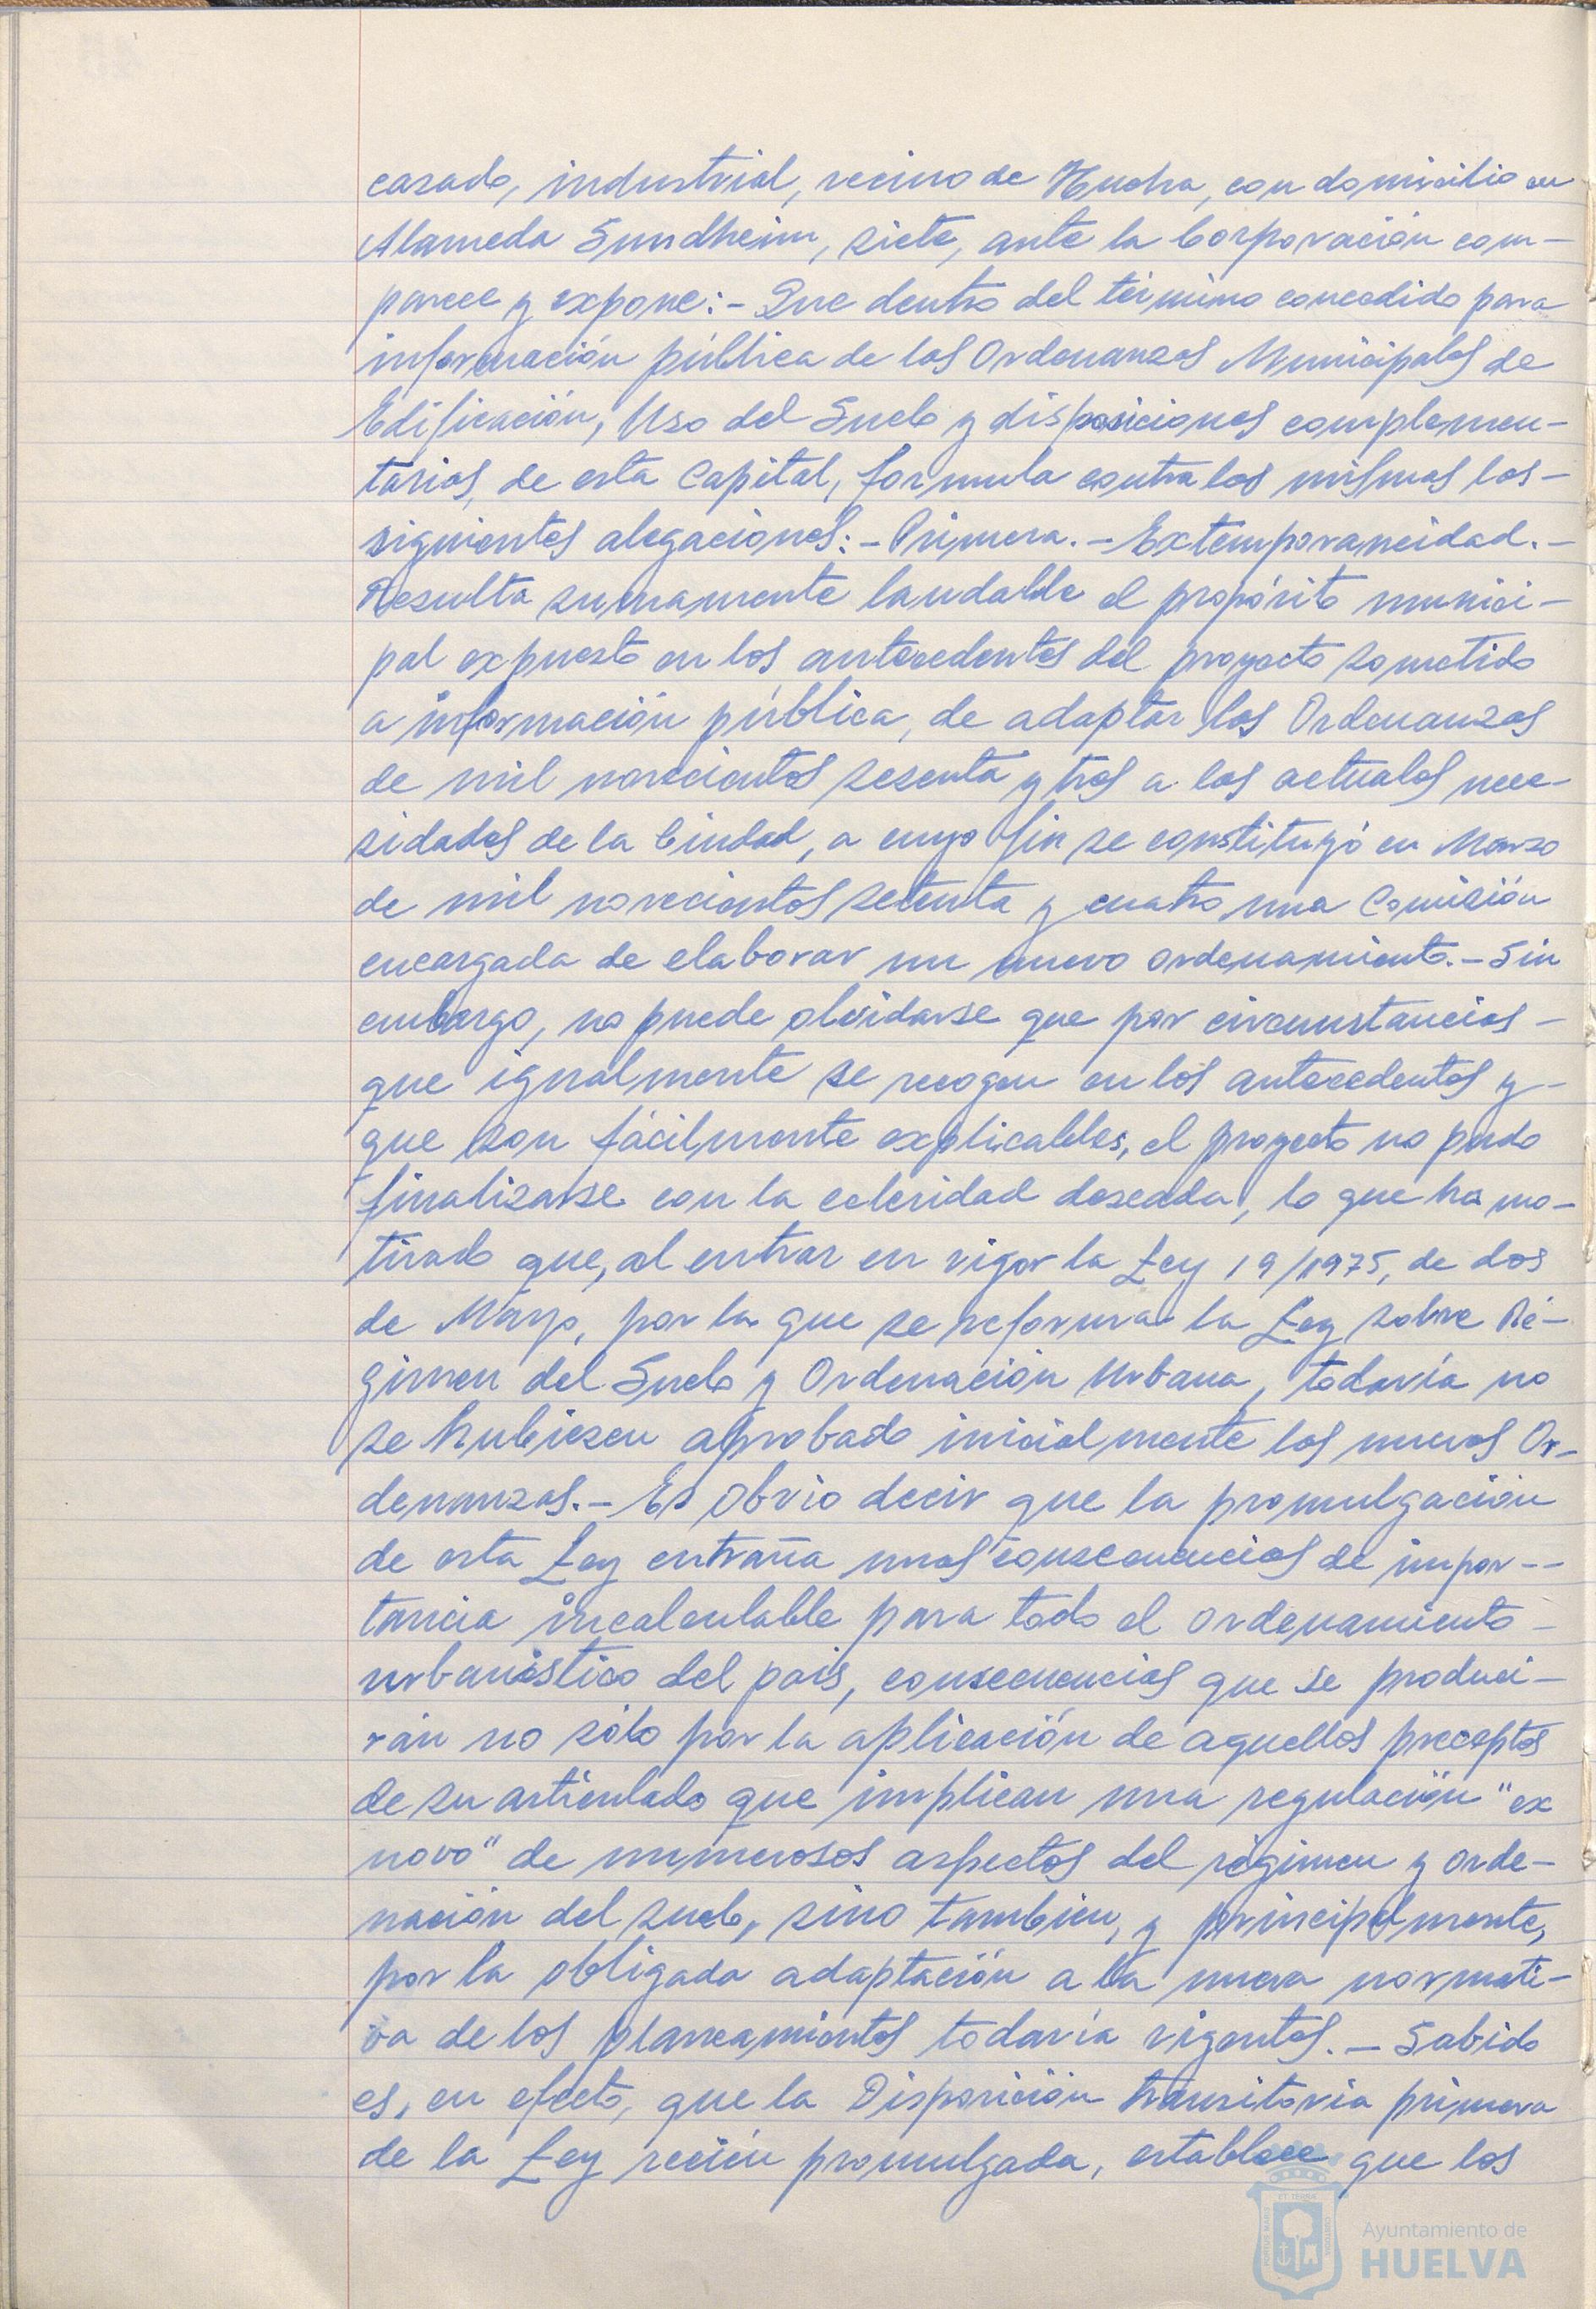 casado, industrial, vecino de Huelva, con domicilio en
Alameda Sundheim, siete, ante la Corporación com-
parece y expone:- Que dentro del término concedido para
información pública de las Ordenanzas Municipales de
Edificación, Uso del Suelo y disposiciones complemen-
tarias, de esta Capital, formula contra las mismas las-
siguientes alegaciones:- Primera.- Extemporaneidad.-
Resulta sumamente laudable el propósito munici-
pal expuesto en los antecedentes del proyecto sometido
a información pública, de adaptar las Ordenanzas
de mil novecientos sesenta y tres a las actuales nece-
sidades de la Ciudad, a cuyo fin se constituyó en Marzo
de mil novecientos setenta y cuatro una Comisión
encargada de elaborar un nuevo ordenamiento.- Sin
embargo, no puede olvidarse que por circunstancias -
que igualmente se recogen en los antecedentes y -
que son fácilmente explicables, el proyecto no pudo
finalizarse con la celeridad deseada, lo que ha mo-
tivado que, al entrar en vigor la Ley 19/1975, de dos
de Mayo, por la que se reforma la Ley sobre Ré-
gimen del Suelo y Ordenación Urbana, todavía no
se hubiesen aprobado inicialmente las nuevas Or-
denanzas.- Es obvio decir que la promulgación
de esta Ley entraña unas consecuencias de impor--
tancia incalculable para todo el ordenamiento -
urbanístico del pais, consecuencias que se produci-
rán no sólo por la aplicación de aquellos preceptos
de su articulado que implican una regulación "ex
novo" de numerosos aspectos del régimen y orde-
nación del suelo, sino tambien, y principalmente,
por la obligada adaptación a la nueva normati-
va de los planeamientos todavía vigentes.- Sabido
es, en efecto, que la Disposición transitoria primera
de la Ley recién promulgada, establece que los
Ayuntamiento de
HUELVA